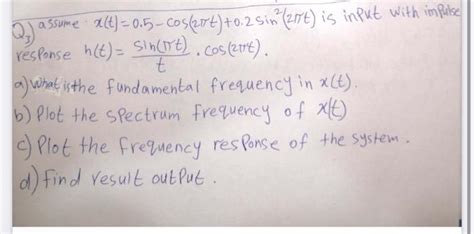 Q3) assume x(t)=0.5-cos(2πt)+0.2 sin²(2πt) is input with impulse
response h(t)= sin(πt)/t . cos(2πt).
a) what is the fundamental frequency in x(t).
b) Plot the spectrum frequency of x(t)
c) Plot the frequency response of the system.
d) find result output.